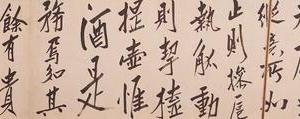 縱意所如
止則操卮
執觚動
則挈榼
提壺惟
酒是
務焉知其
餘有貴